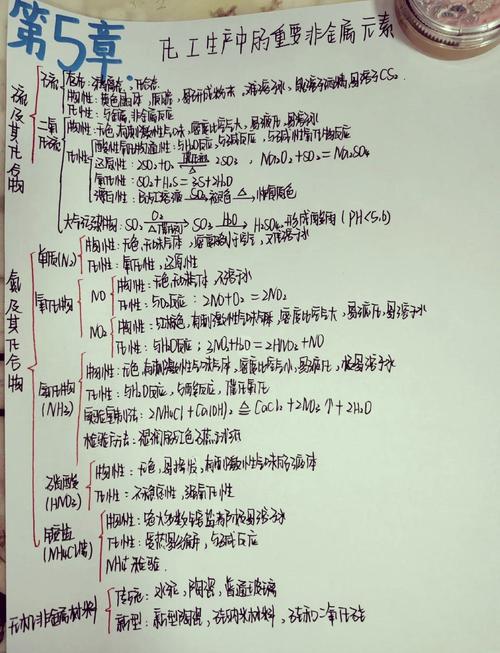 第5章.
化工生产中的重要非金属元素
硫及其化合物
硫
存在:游离态,化合态
物性:黄色晶体,质脆,易研成粉末,难溶于水,微溶于酒精,易溶于CS₂
化性:与金属,非金属反应
二氧化硫
物性:无色,有刺激性气味,密度比空气大,易液化,易溶水
化性
酸性氧化物通性:与H₂O反应,与碱反应,与碱性氧化物反应
还原性:2SO₂+O₂ 2SO₃, Na₂O₂+SO₂=Na₂SO₄
氧化性:SO₂+H₂S=3S+2H₂O
漂白性:品红溶液 SO₂ 褪色 △ 恢复原色
大气污染物:SO₂ O₂ △ SO₃ H₂O H₂SO₄.形成酸雨(PH<5.6)
氮及其化合物
氮气(N₂)
物性:无色,无味气体,密度略小于空气,又难溶于水
化性:氧化性,还原性
氧化物
NO
物性:无色,无味气体,不溶于水
化性:与O₂反应:2NO+O₂=2NO₂
NO₂
物性:红棕色,有刺激性气味气体,密度比空气大,易液化,易溶于水
化性:与H₂O反应;2NO₂+H₂O=2HNO₃+NO
氢化物(NH₃)
物性:无色,有刺激性气味气体,密度比空气小,易液化,极易溶于水
化性:与H₂O反应,与酸反应,催化氧化
实验室制法:2NH₄Cl+Ca(OH)₂ ≙ CaCl₂+2NO₃↑+2H₂O
检验方法:湿润用红色石蕊试纸
硝酸(HNO₃)
物性:无色,易挥发,有刺激性气味的液体
化性:不稳定性,强氧化性
铵盐(NH₄Cl等)
物性:绝大多数铵盐都极易溶于水
化性:受热易分解,与碱反应
NH₄⁺检验.
无机非金属材料
传统:水泥,陶瓷,普通玻璃
新型:新型陶瓷,碳纳米材料,硅和二氧化硅